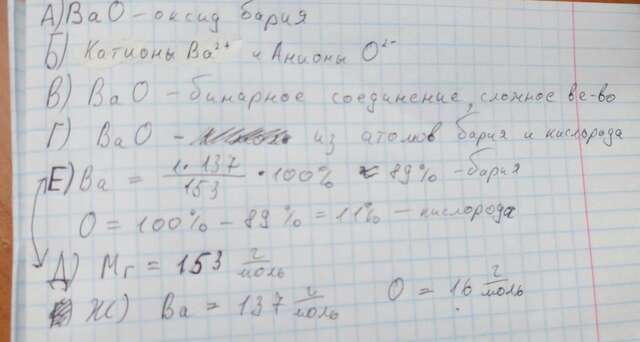 А) BaO - оксид бария
Б) Катионы Ba²⁺ и Анионы O²⁻
В) BaO - бинарное соединение, сложное ве-во
Г) BaO - из атомов бария и кислорода
Е) Ba = 1·137/153 · 100% ≈ 89% - бария
O = 100% - 89% = 11% - кислорода
Д) Mr = 153 г/моль
Ж) Ba = 137 г/моль O = 16 г/моль